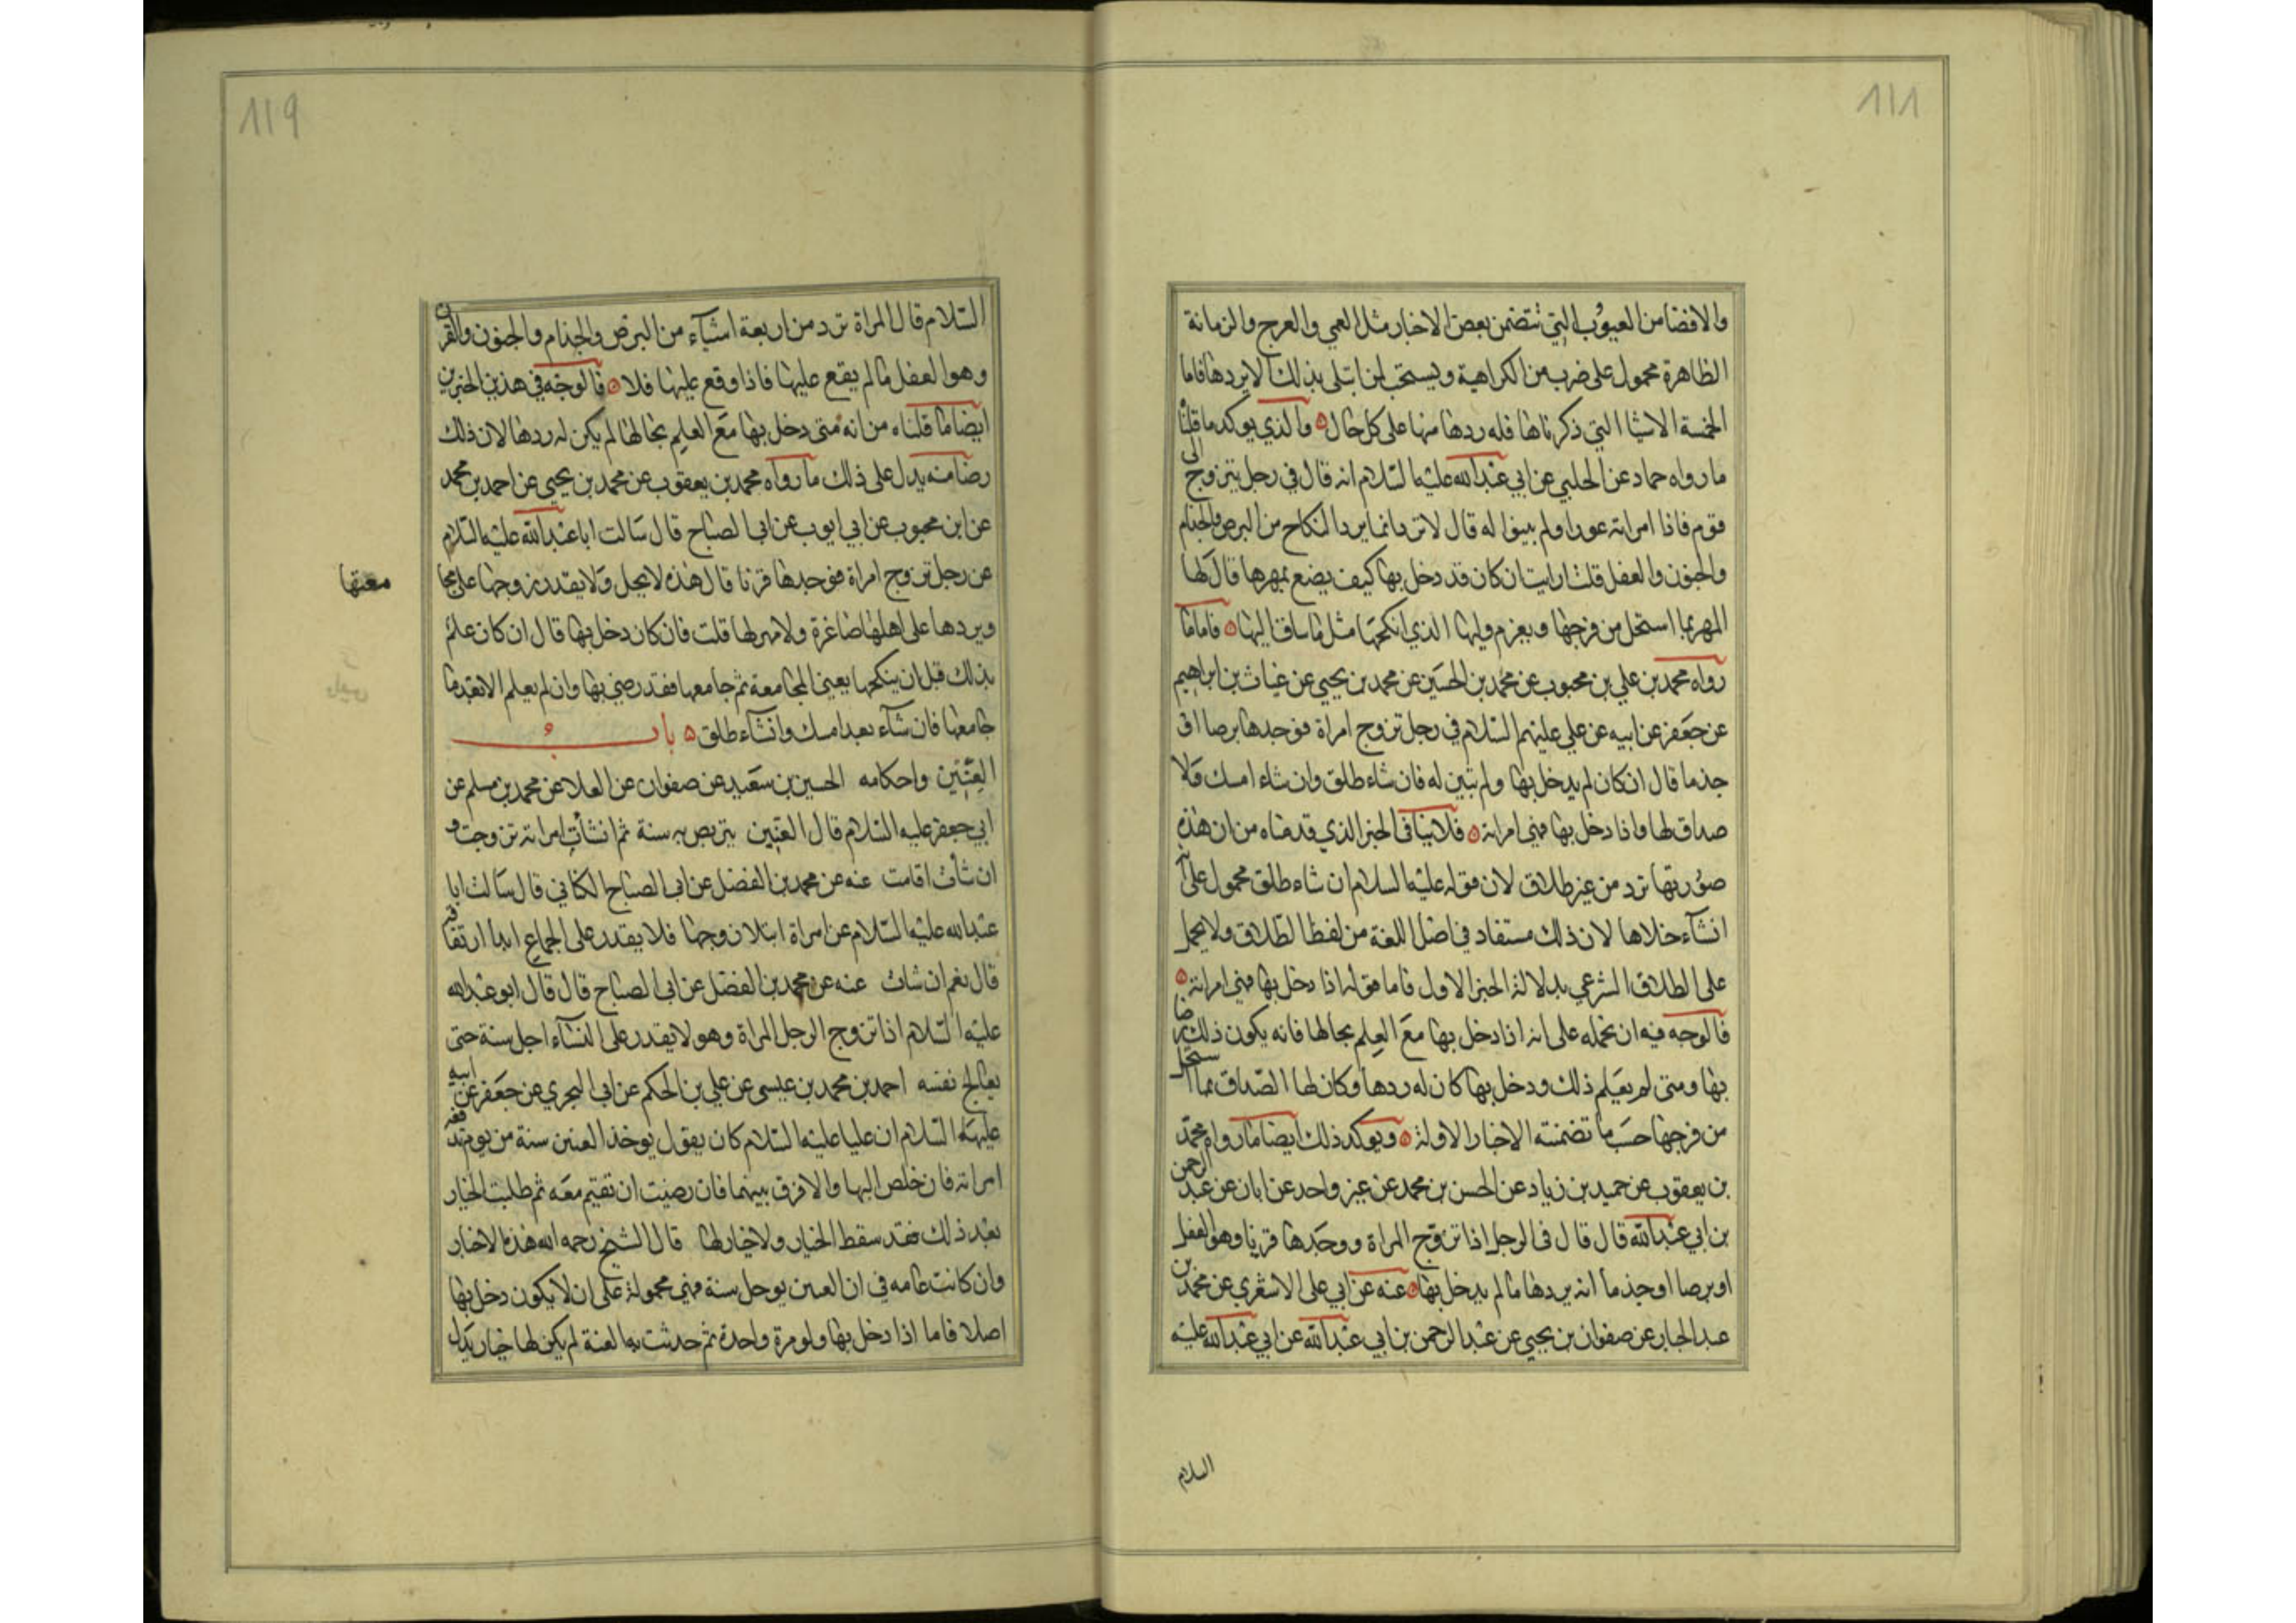 ١١٨
والافضا من العيوب التي تتضمن بعض الاخبار مثل العمي والعرج والزمانة
الظاهرة محمول على ضرب من الكراهية ويستحب لمن ابتلى بذلك الا يردها فاما
الخمسة الاشيا التي ذكرناها فله ردها منها على كل حال ٥ والذي يوكد ما قلنا
ما رواه حماد عن الحلبي عن ابي عبدالله عليه السلام انه قال في رجل يتزوج الى
قوم فاذا امراته عورا ولم يبينوا له قال لا ترد انما يرد النكاح من البرص والجذام
والجنون والعفل قلت ارايت ان كان قد دخل بها كيف يصنع بمهرها قال لها
المهر بما استحل من فرجها ويغرم وليها الذي انكحها مثل ما ساق اليها ٥ فاما ما
رواه محمد بن علي بن محبوب عن محمد بن الحسين عن محمد بن يحيي عن غياث بن ابراهيم
عن جعفر عن ابيه عن علي عليهم السلام في رجل تزوج امراة فوجدها برصا او
جذما قال ان كان لم يدخل بها ولم تبين له فان شاء طلق وان شاء امسك ولا
صداق لها واذا دخل بها فهي امراته ٥ فلا ينافى الخبر الذي قدمناه من ان هذه
صورتها ترد من غير طلاق لان قوله عليه السلام ان شاء طلق محمول على
ان شاء خلاها لان ذلك مستفاد في اصل اللغة من لفظ الطلاق ولا يحمل
على الطلاق الشرعي بدلالة الخبر الاول فاما قوله اذا دخل بها فهي امراته ٥
فالوجه فيه ان نحمله على انه اذا دخل بها مع العلم بحالها فانه يكون ذلك رضا
بها ومتى لم يعلم ذلك ودخل بها كان له ردها وكان لها الصداق بما استحل
من فرجها حسب ما تضمنته الاخبار الاولة ٥ ويوكد ذلك ايضا ما رواه محمد
بن يعقوب عن حميد بن زياد عن الحسن بن محمد عن غير واحد عن ابان عن عبد الرحمن
بن ابي عبدالله قال قال في الرجل اذا تزوج المراة ووجدها قرنا وهو العفل
او برصا او جذما انه يردها ما لم يدخل بها ٥ عنه عن ابي على الاشعري عن محمد بن
عبد الجبار عن صفوان بن يحيي عن عبد الرحمن بن ابي عبدالله عن ابي عبدالله عليه
السلام
١١٩
السلام قال المراة ترد من اربعة اشيآء من البرص والجذام والجنون والقرن
وهو العفل ما لم يقع عليها فاذا وقع عليها فلا ٥ فالوجه في هذين الخبرين
ايضا ما قلناه من انه متى دخل بها مع العلم بحالها لم يكن له ردها لان ذلك
رضا منه يدل على ذلك ما رواه محمد بن يعقوب عن محمد بن يحيى عن احمد بن محمد
عن ابن محبوب عن ابي ايوب عن ابى الصباح قال سالت ابا عبدالله عليه السلام
عن رجل تزوج امراة فوجدها قرنا قال هذه لا يحبل ولا يقدر زوجها على مجا
معتها
ويردها على اهلها صاغرة ولا مهر لها قلت فان كان دخل بها قال ان كان علم
بذلك قبل ان ينكحها يعني المجامعة ثم جامعها فقد رضي بها وان لم يعلم الا بعد ما
جامعها فان شآء بعد امسك وان شآء طلق ٥ باب
العنين واحكامه الحسين بن سعيد عن صفوان عن العلا عن محمد بن مسلم عن
ابي جعفر عليه السلام قال العنين يتربص به سنة ثم ان شأت امراته تزوجت و
ان شأت اقامت عنه عن محمد بن الفضل عن ابى الصباح الكناني قال سالت ابا
عبدالله عليه السلام عن امراة ابتلا زوجها فلا يقدر على الجماع ابدا اتفارقه
قال نعم ان شات عنه عن محمد بن الفضل عن ابى الصباح قال قال ابو عبدالله
عليه السلام اذا تزوج الرجل المراة وهو لا يقدر على النسآء اجل سنة حتى
يعالج نفسه احمد بن محمد بن عيسى عن علي بن الحكم عن ابى البحري عن جعفر عن ابيه
عليهما السلام ان عليا عليه السلام كان يقول يوخذ العنين سنة من يوم ترفعه
امراته فان خلص اليها والا فرق بينهما فان رضيت ان تقيم معه ثم طلبت الخيار
بعد ذلك فقد سقط الخيار ولا خيار لها قال الشيخ رحمه الله هذه الاخبار
وان كانت عامه في ان العنين يوجل سنة فهي محمولة على ان لا يكون دخل بها
اصلا فاما اذا دخل بها ولو مرة واحدة ثم حدثت به العنة لم يكن لها خيار يدل